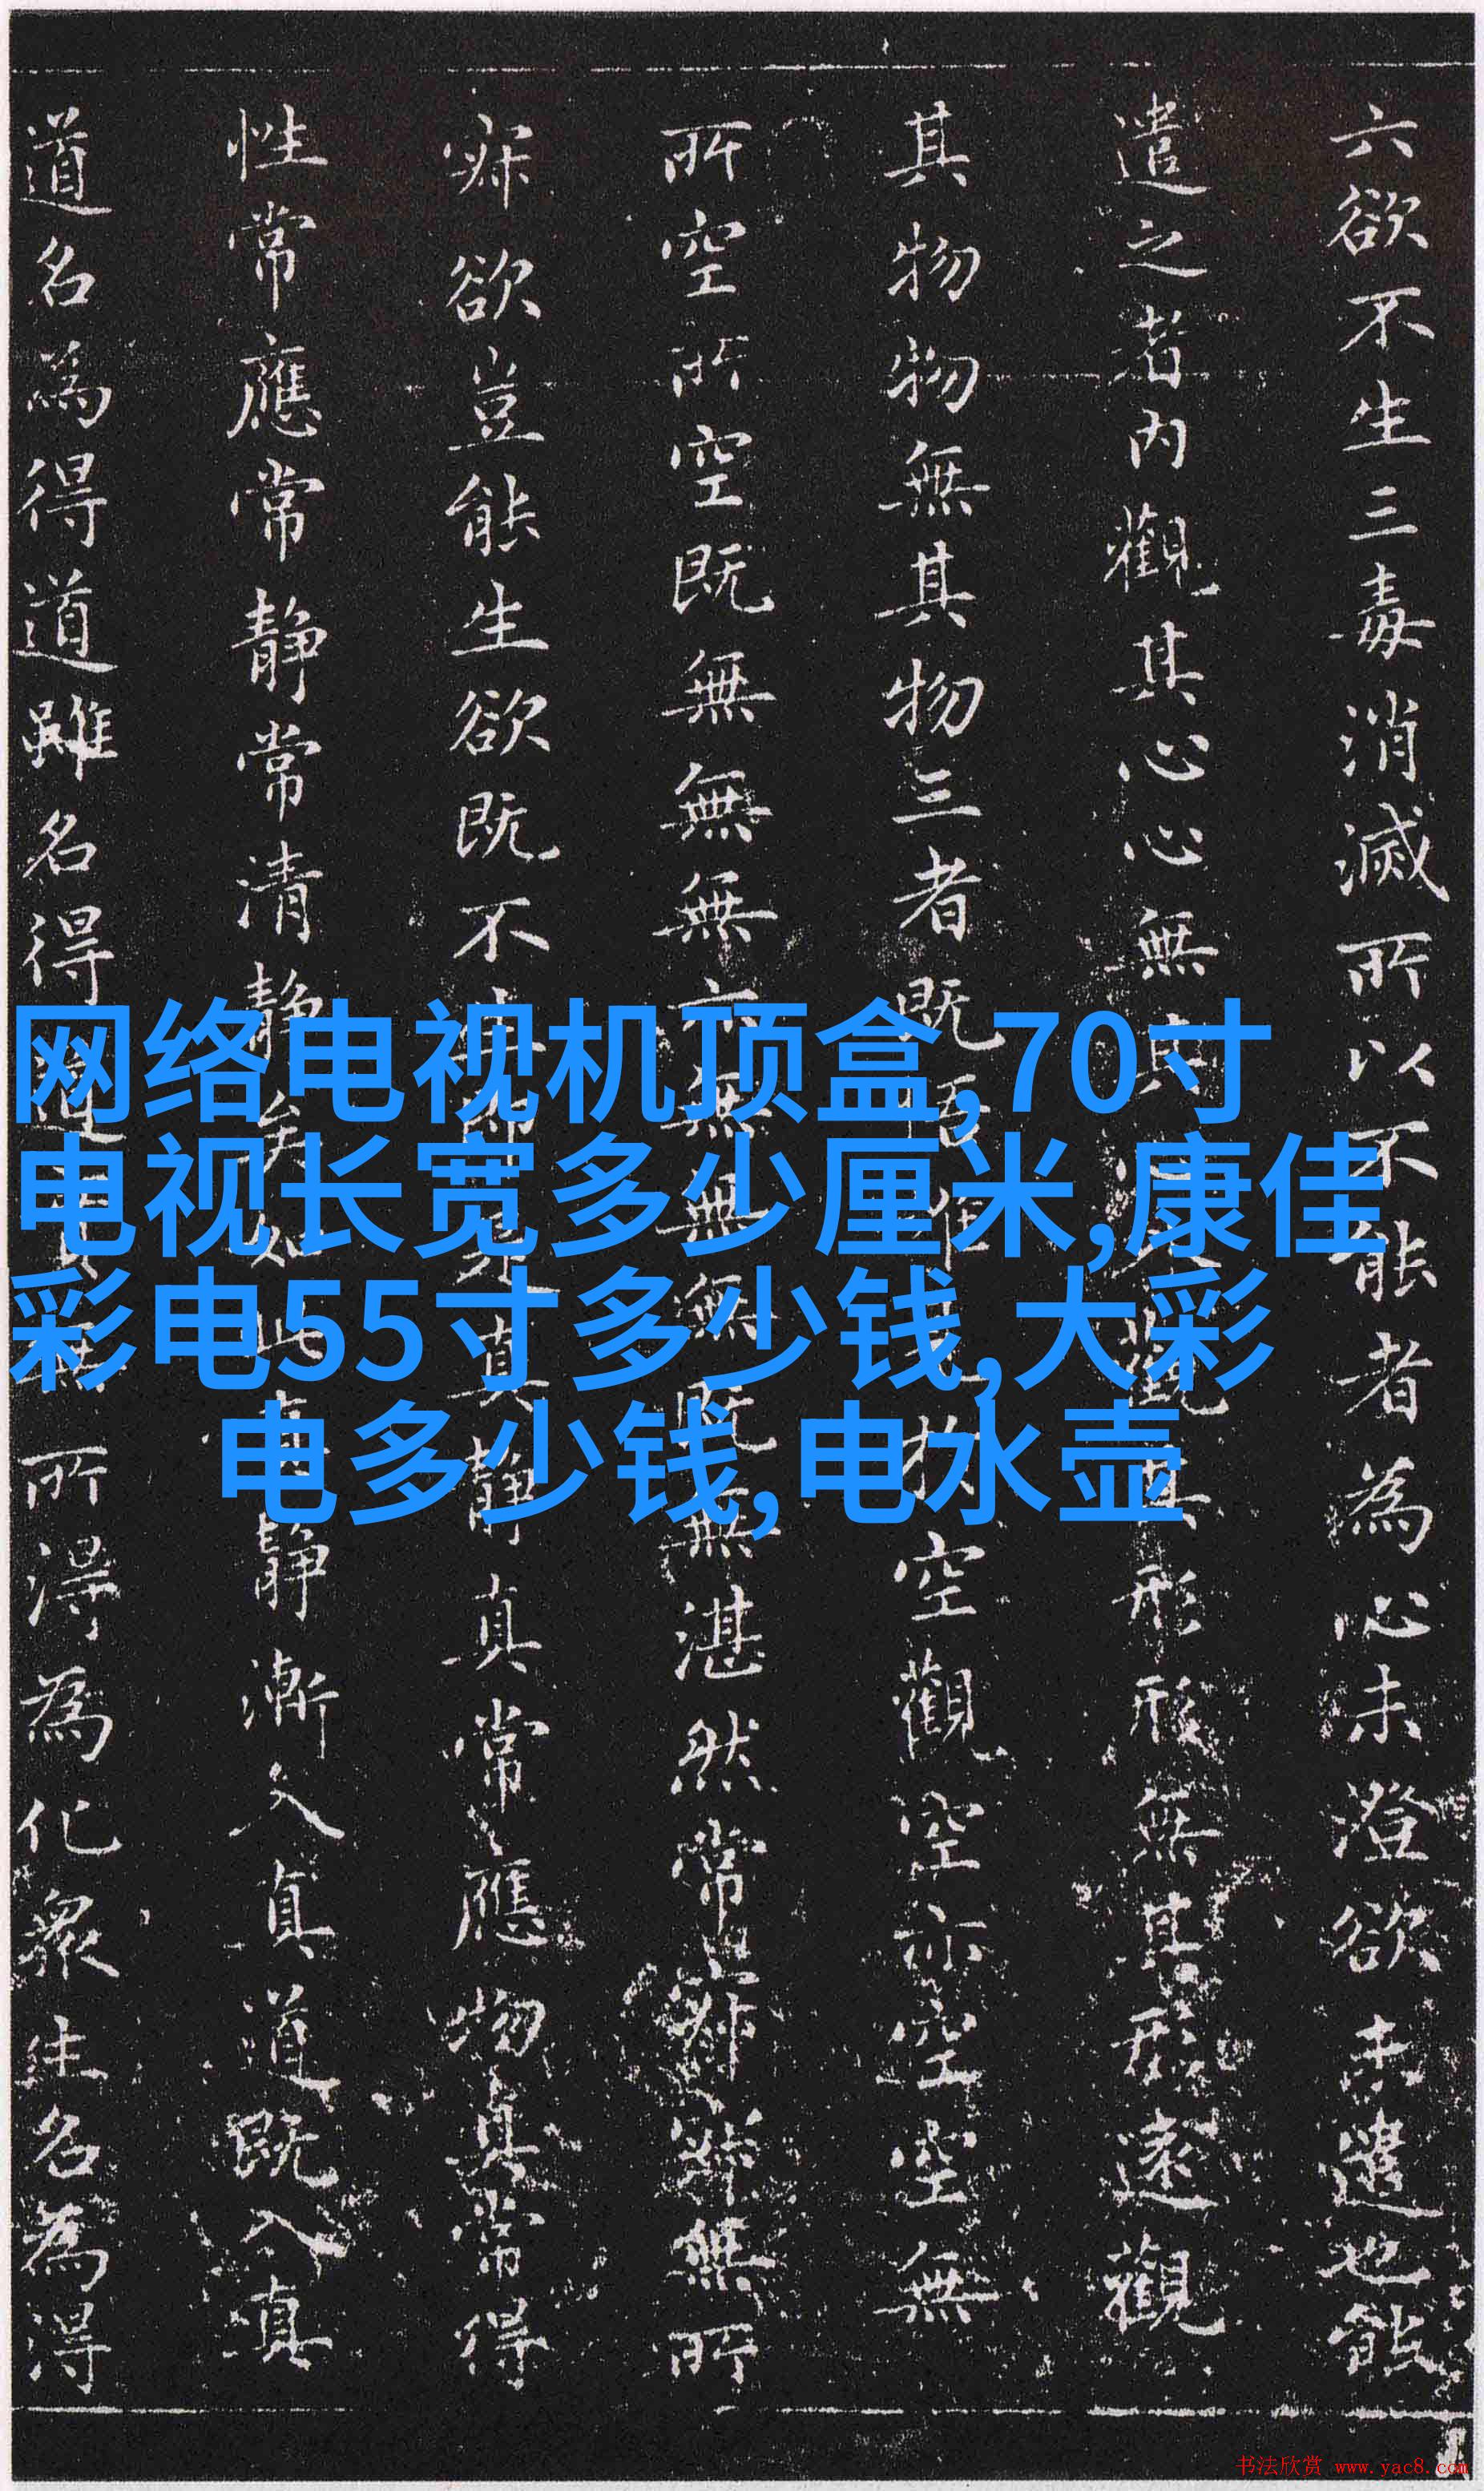 六欲不生三毒消滅所以不能者為心未澄欲未遣也能
遣之者内觀其心心無其心外觀其形形無其形遠觀
其物物無其物三者既悟唯見於空觀空亦空空無
所空所空既無無無亦無無無既無湛然常寂寂無所
寂欲豈能生欲既不生即是真静真常應物真常得
性常應常静常清静矣如此清静漸入真道既入真
道名為得道雖名得道實無所得為化衆生名為得
网络电视机顶盒,70寸
电视长宽多少厘米,康佳
彩电55寸多少钱,大彩
电多少钱,电水壶
书法欣赏 www.yac8.com